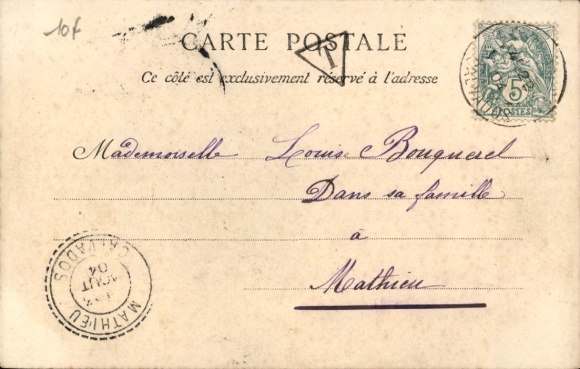 10f
CARTE POSTALE
T
Ce côté est exclusivement réservé à l'adresse
5
POSTES
Mademoiselle Louise Bouquerel
Dans sa famille
à
Mathieu
MATHIEU
CALVADOS
AOUT
04